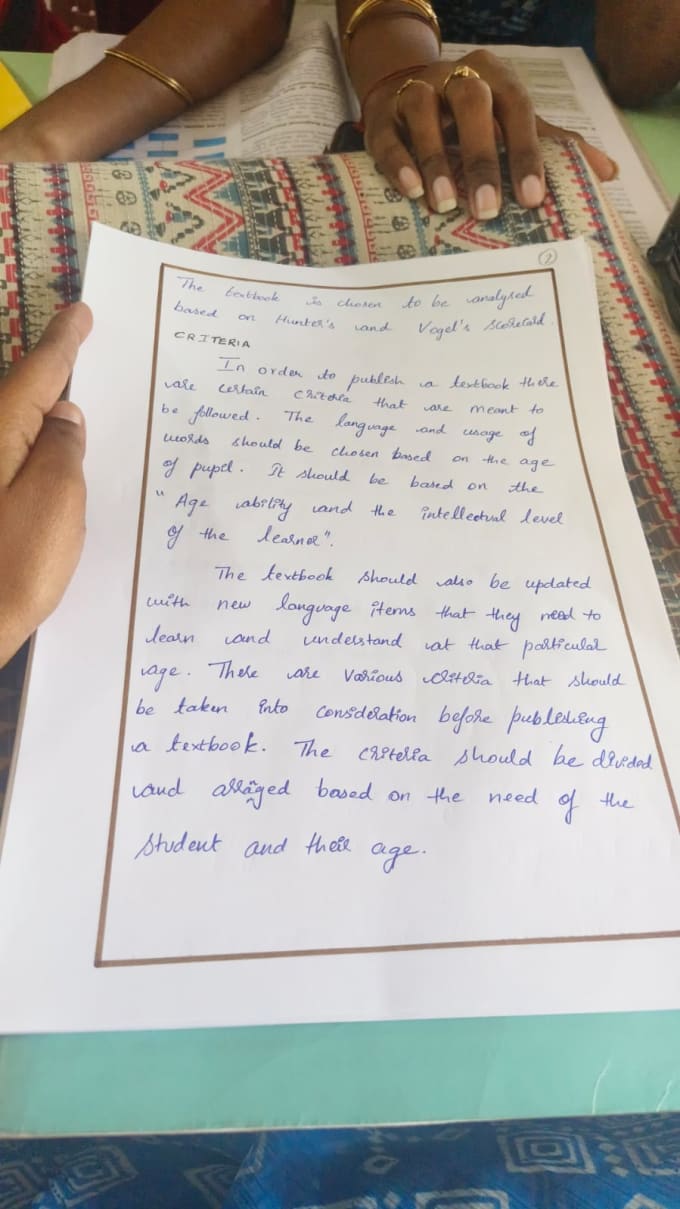 2
The textbook is chosen to be analysed
based on Hunter's and Vogel's scorecard.
CRITERIA
In order to publish a textbook there
are certain criteria that are meant to
be followed. The language and usage of
words should be chosen based on the age
of pupil. It should be based on the
"Age ability and the intellectual level
of the learner".
The textbook should also be updated
with new language items that they need to
learn and understand at that particular
age. There are various criteria that should
be taken into consideration before publishing
a textbook. The criteria should be divided
and arranged based on the need of the
student and their age.